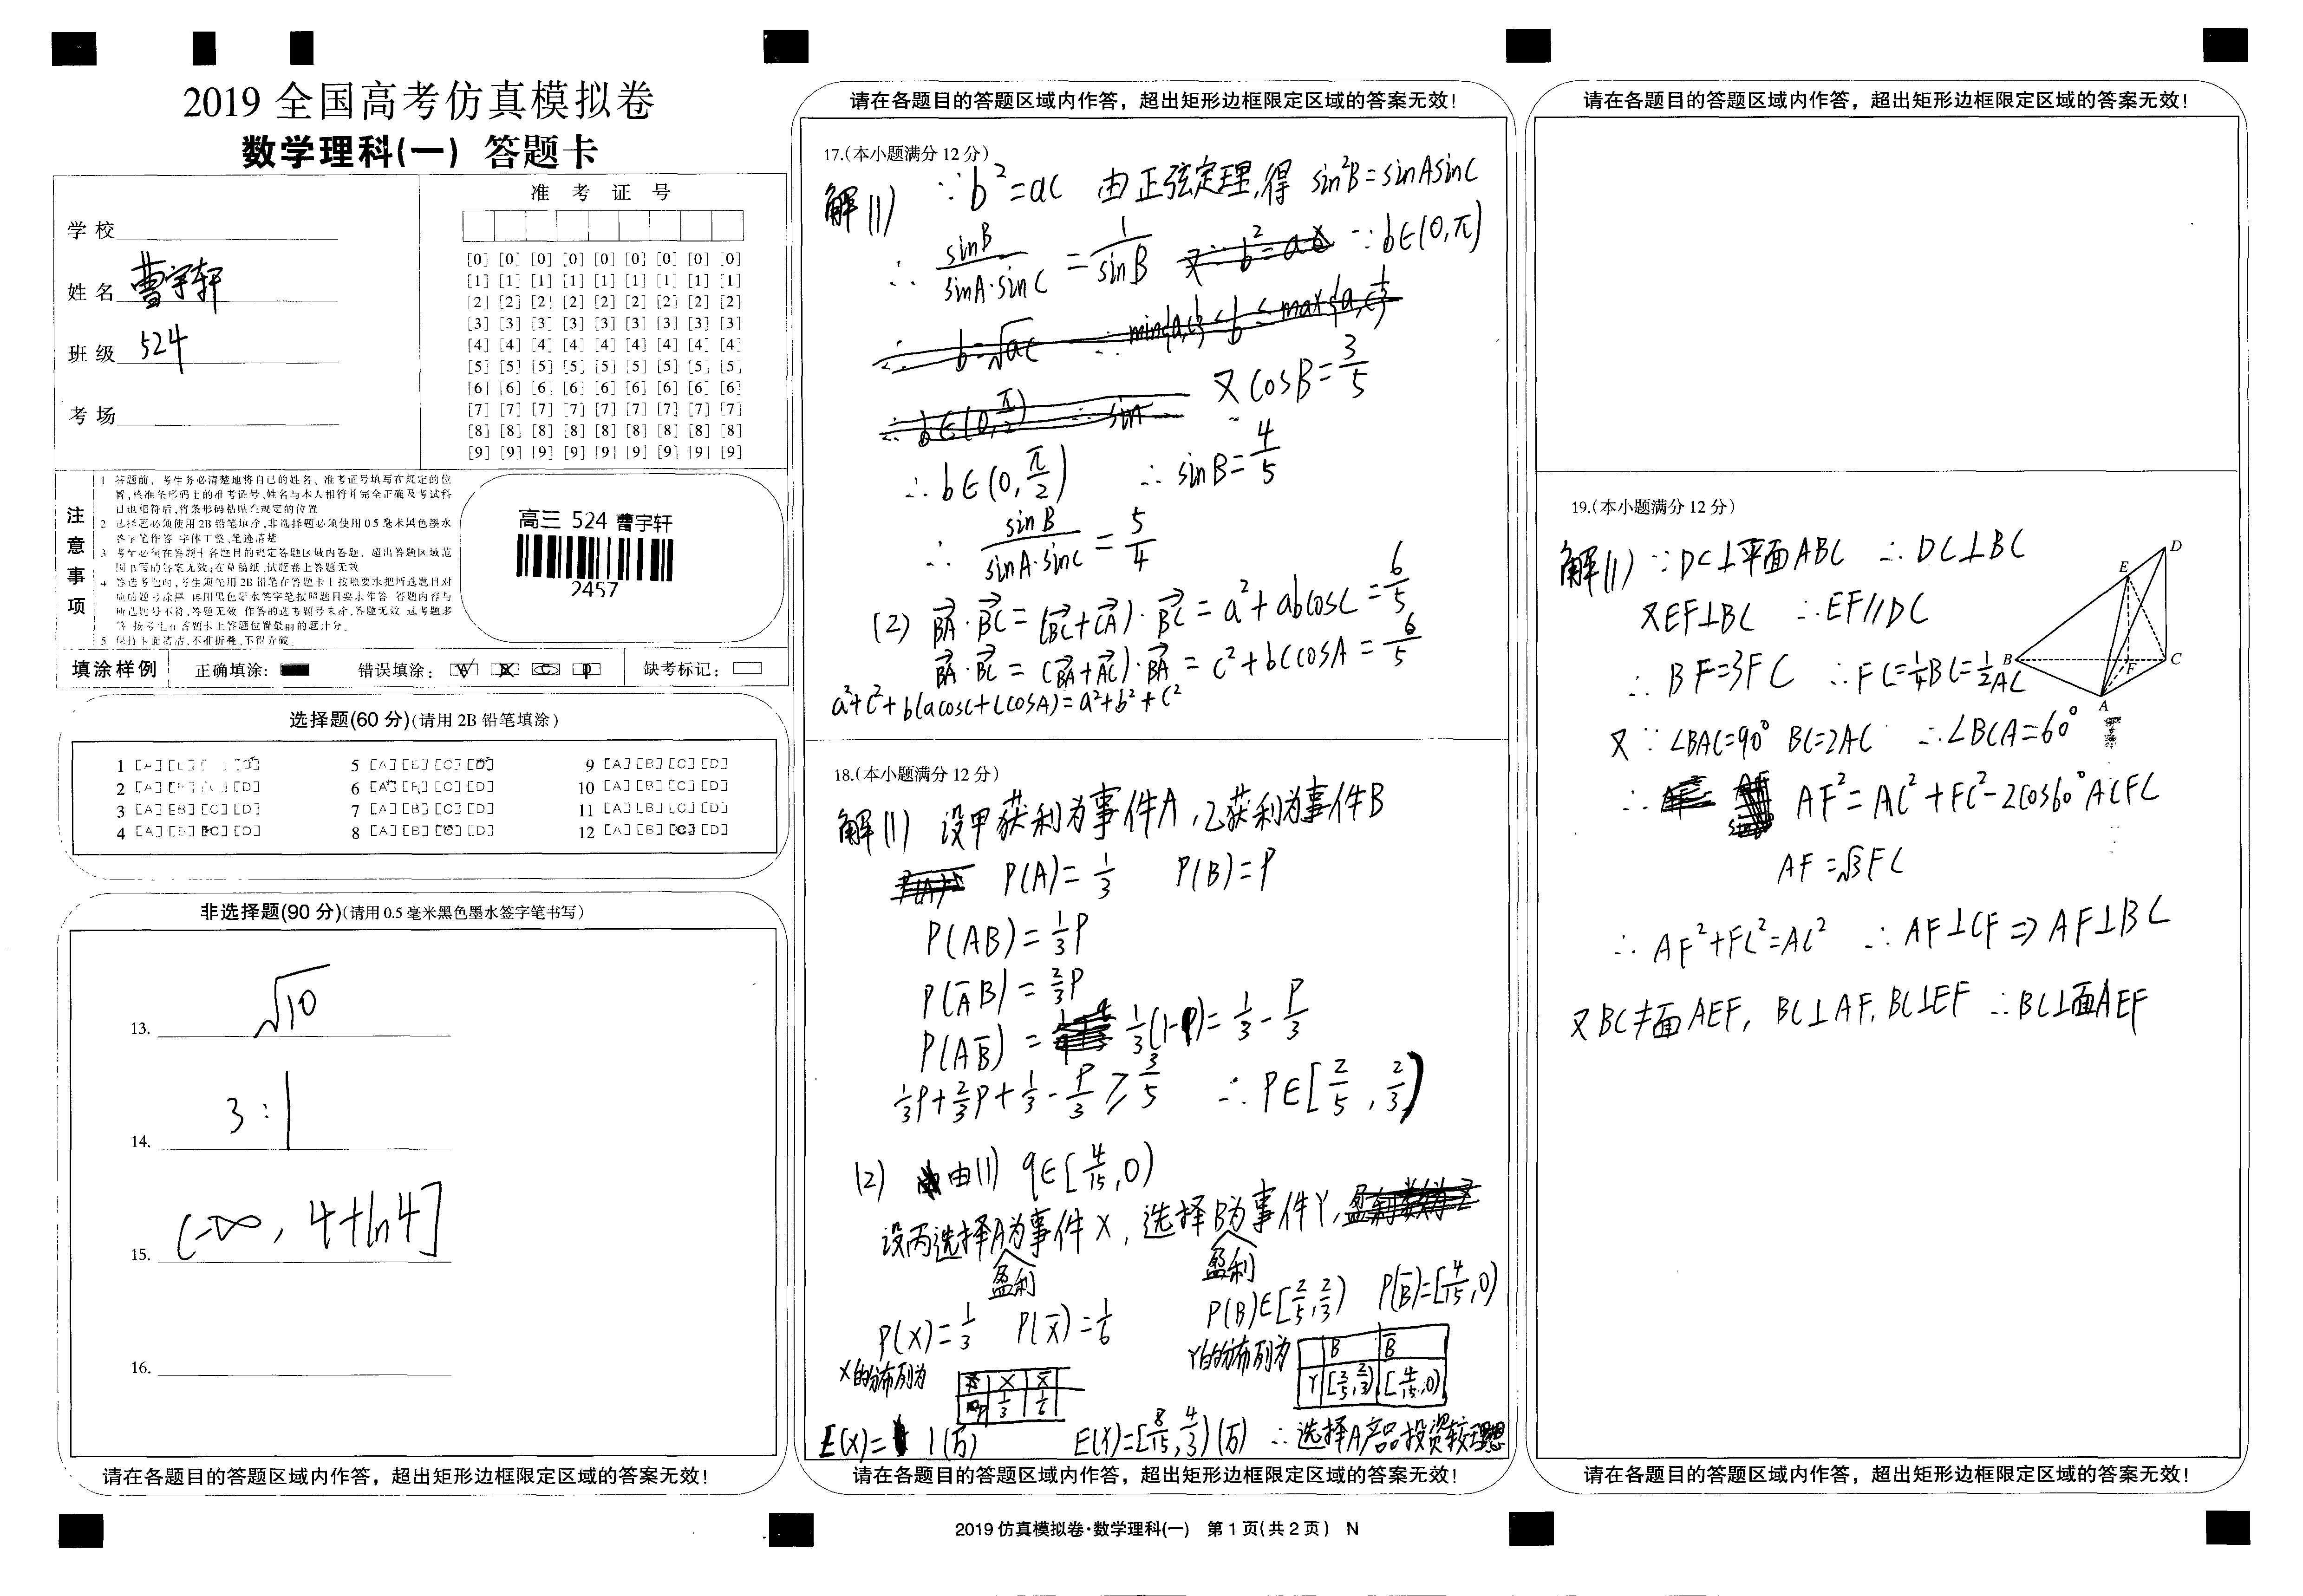 2019 全国高考仿真模拟卷
数学理科(一) 答题卡
学校
姓名 曹宇轩
班级 524
考场
准 考 证 号
[0] [0] [0] [0] [0] [0] [0] [0] [0]
[1] [1] [1] [1] [1] [1] [1] [1] [1]
[2] [2] [2] [2] [2] [2] [2] [2] [2]
[3] [3] [3] [3] [3] [3] [3] [3] [3]
[4] [4] [4] [4] [4] [4] [4] [4] [4]
[5] [5] [5] [5] [5] [5] [5] [5] [5]
[6] [6] [6] [6] [6] [6] [6] [6] [6]
[7] [7] [7] [7] [7] [7] [7] [7] [7]
[8] [8] [8] [8] [8] [8] [8] [8] [8]
[9] [9] [9] [9] [9] [9] [9] [9] [9]
注意事项
1 答题前，考生务必清楚地将自己的姓名、准考证号填写在规定的位
置，核准条形码上的准考证号、姓名与本人相符并完全正确及考试科
目也相符后，将条形码粘贴在规定的位置
2 选择题必须使用 2B 铅笔填涂，非选择题必须使用 0 5 毫米黑色墨水
签字笔作答 字体工整、笔迹清楚
3 考生必须在答题卡各题目的规定答题区域内答题，超出答题区域范
围书写的答案无效；在草稿纸、试题卷上答题无效
5 保持卡面清洁、不准折叠、不得弄破。
高三 524 曹宇轩
2457
填涂样例 正确填涂： 错误填涂： 缺考标记：
选择题(60 分)(请用 2B 铅笔填涂)
1 5 [A] [B] [C] [D] 9 [A] [B] [C] [D]
2 6 [A] [B] [C] [D] 10 [A] [B] [C] [D]
3 [A] [B] [C] [D] 7 [A] [B] [C] [D] 11 [A] [B] [C] [D]
4 [A] [B] [C] [D] 8 [A] [B] [C] [D] 12 [A] [B] [C] [D]
非选择题(90 分)(请用 0.5 毫米黑色墨水签字笔书写)
13. √10
14. 3:1
15. (-∞, 4+ln4]
16.
请在各题目的答题区域内作答，超出矩形边框限定区域的答案无效！
请在各题目的答题区域内作答，超出矩形边框限定区域的答案无效！
17.(本小题满分 12 分)
解(1) ∵b²=ac 由正弦定理,得 sin²B=sinAsinC
∴ sinB/(sinA·sinC) = 1/sinB ∵b∈(0,π)
又cosB=3/5
∴b∈(0,π/2) ∴sinB=4/5
∴ sinB/(sinA·sinC) = 5/4
(2) BA·BC=(BC+CA)·BC=a²+abcosC=6/5
BA·BC=(BA+AC)·BA=c²+bccosA=6/5
a²+c²+b(acosC+ccosA)=a²+b²+c²
18.(本小题满分 12 分)
解(1) 设甲获利为事件A,乙获利为事件B
P(A)=1/3 P(B)=P
P(AB)=1/3P
P(A̅B)=2/3P
P(AB̅)=1/3(1-P)=1/3-P/3
1/3P+2/3P+1/3-P/3≥3/5 ∴P∈[2/5,2/3)
(2) 由(1) q∈[4/15,0)
设丙选择A盈利为事件X,选择B盈利为事件Y,
P(X)=1/3 P(X̅)=1/6 P(B)∈[2/5,2/3) P(B̅)=[4/15,0)
X的分布列为 X X̅ 1/3 1/6
Y的分布列为 B B̅ Y [2/5,2/3) [4/15,0)
E(X)=1(万) E(Y)=[8/15,4/3)(万) ∴选择A产品投资较理想
请在各题目的答题区域内作答，超出矩形边框限定区域的答案无效！
2019 仿真模拟卷·数学理科(一) 第 1 页(共 2 页) N
请在各题目的答题区域内作答，超出矩形边框限定区域的答案无效！
19.(本小题满分 12 分)
解(1)∵DC⊥平面ABC ∴DC⊥BC
又EF⊥BC ∴EF∥DC
∴BF=3FC ∴FC=1/4BC=1/2AC
又∵∠BAC=90° BC=2AC ∴∠BCA=60°
∴ AF²=AC²+FC²-2cos60°ACFC
AF=√3FC
∴AF²+FC²=AC² ∴AF⊥CF⇒AF⊥BC
又BC≠面AEF, BC⊥AF, BC⊥EF ∴BC⊥面AEF
D
E
B
F
C
A
请在各题目的答题区域内作答，超出矩形边框限定区域的答案无效！